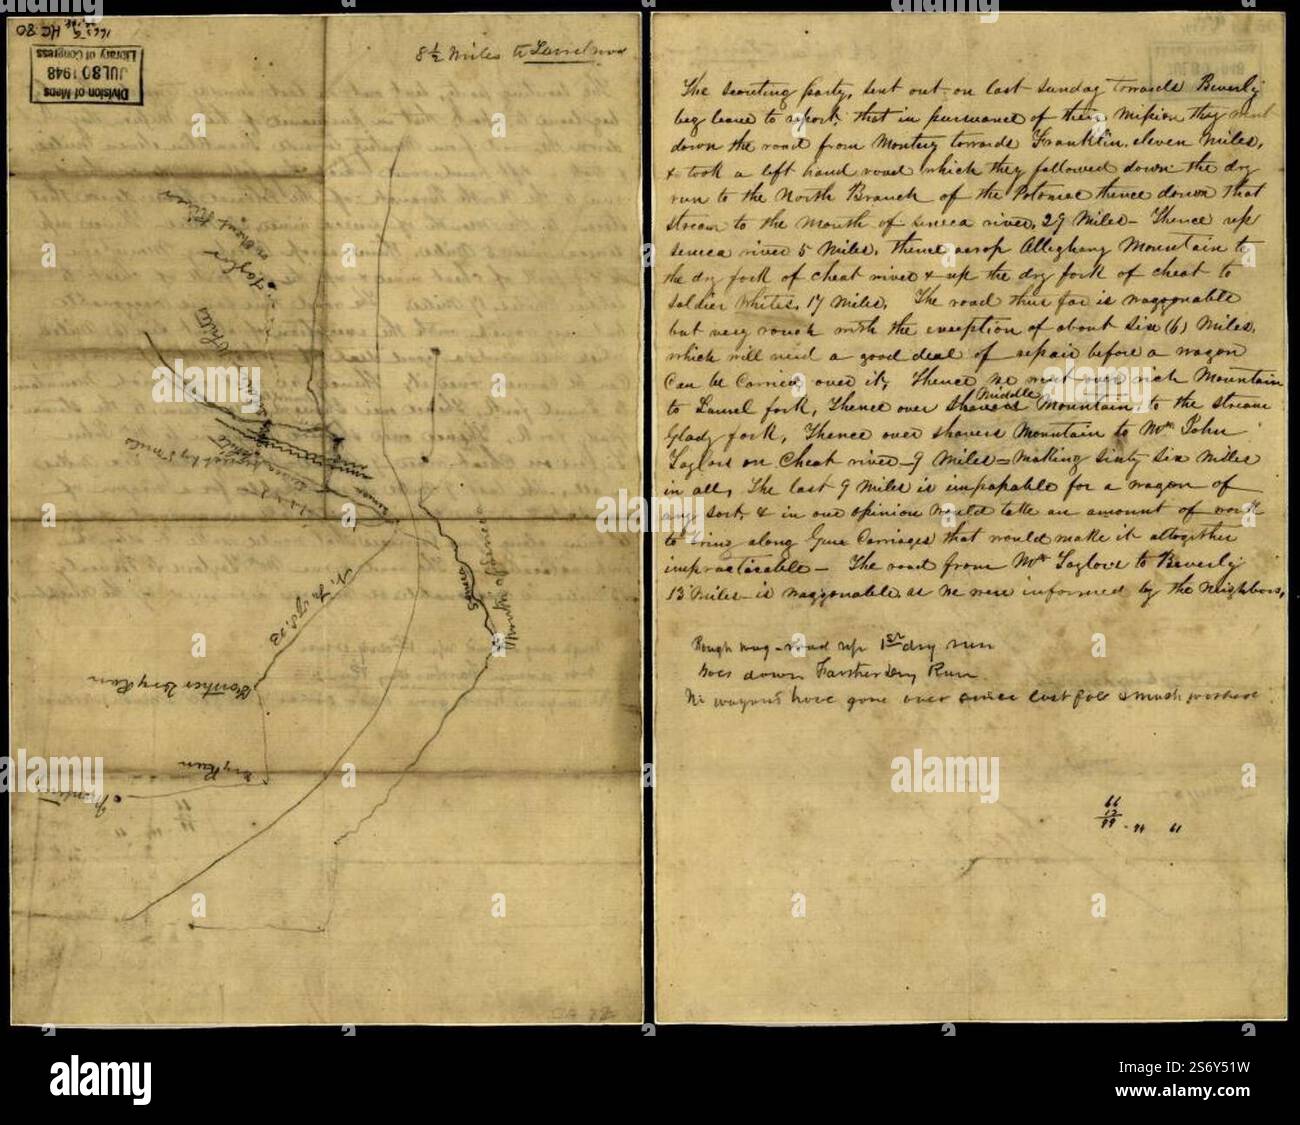 8½ Miles to Laurel
Division of Maps
JUL 30 1948
Library of Congress
HC 80
Taylor
on Cheat River
Whites
Seneca
Mouth of Seneca
Farther Dry Run
Dry Run
The scouting party, sent out on last sunday towards Beverly
beg leave to report, that in pursuance of their Mission they went
down the road from Montery towards Franklin, eleven Miles,
& took a left hand road which they followed down the dry
run to the North Branch of the Potomac thence down that
stream to the Mouth of seneca river, 29 Miles – Thence up
seneca river 5 Miles, thence across Alleghany Mountain to
the dry fork of cheat river & up the dry fork of cheat to
soldier Whites, 17 Miles, The road thus far is waggonable
but very rough with the exception of about six (6) Miles,
which will need a good deal of repair before a wagon
Can be Carried over it, Thence we went over rich Mountain
to Laurel fork, Thence over shavers Middle Mountain, to the stream
Glady fork, Thence over shavers Mountain to Mr John
Taylors on Cheat river – 9 Miles = Making sixty six Miles
in all, The last 9 Miles is impassable for a wagon of
any sort, & in our opinion would take an amount of work
to bring along Gun Carriages that would make it altogether
impracticable – The road from Mr Taylors to Beverly
13 Miles – is waggonable as we were informed by the Neighbors,
Rough wag - road up 1st dry run
Goes down Farther Dry Run
No wagons have gone over since last fall & much washed
66
99
a
alamy
Image ID: 2S6Y51W
www.alamy.com